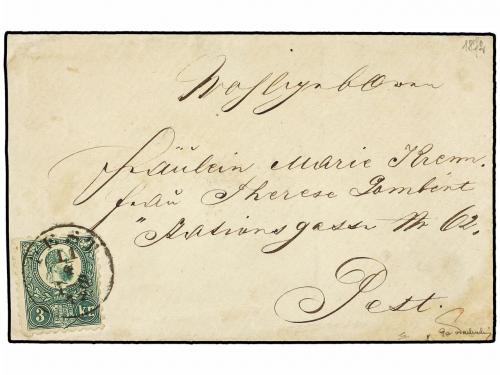 1872
Wohlgeboren
Fräulein Marie Krenn.
frau Therese Lombért
Stationsgasse № 62.
Pest.
PEST
3 kr